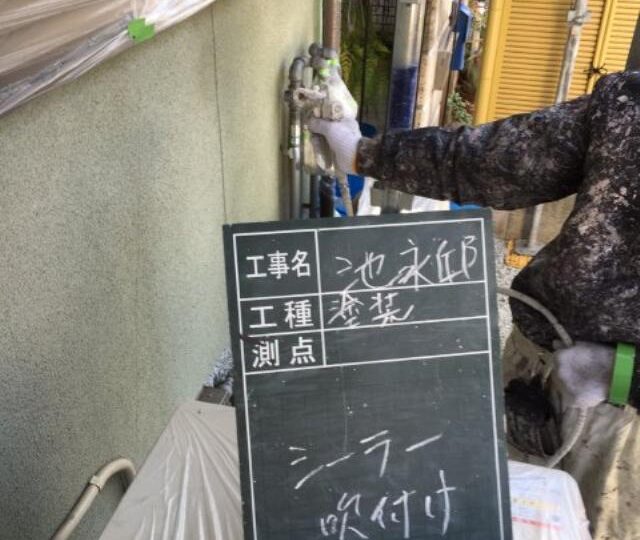 工事名 池永邸
工種 塗装
測点
シーラー
吹付け